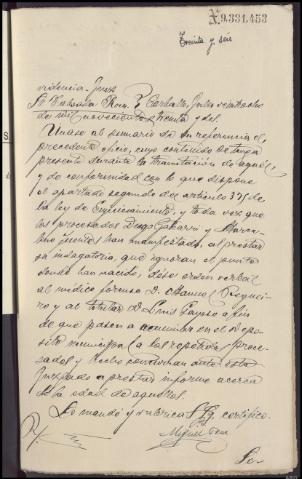 N.9.331.453
Treinta y seis
videncia Juez
Sr Taboada Roca. Carballo, Julio veintiocho
de mil novecientos treinta y seis.
Unase al sumario de su referencia el
precedente oficio, cuyo contenido se tenga
presente durante la tramitación de aquél;
y de conformidad con lo que dispone
el apartado segundo del artículo 375 de
la ley de Enjuiciamiento, y toda vez que
los procesados Diego Gabarri y Marce-
lino Jimenez han manifestado, al prestar
su indagatoria, que ignoran el punto
donde han nacido, dése orden verbal
al médico forense D. Manuel Regueiro
y al titular D. Luis a fin
de que pasen a reconocer en el depó-
sito municipal a los repetidos proce-
sados y hecho comparezcan ante este
Juzgado a prestar informe acerca
de la edad de aquellos.
Lo mandó y rubrica S.Sª certifico.
Miguel